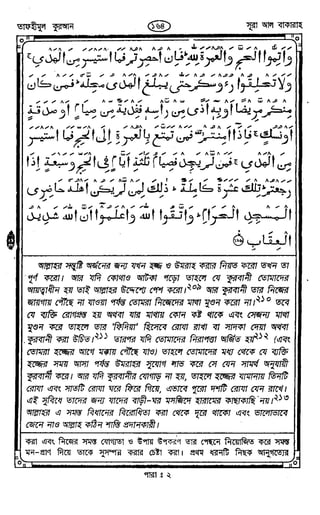 তাফহীমুল কুরআন ১৬৪ সূরা আল বাকারাহ
وَأَتِمُّوا الْحَجَّ وَالْعُمْرَةَ لِلَّهِ فَإِنْ أُحْصِرْتُمْ فَمَا اسْتَيْسَرَ مِنَ الْهَدْيِ
وَلَا تَحْلِقُوا رُءُوسَكُمْ حَتَّى يَبْلُغَ الْهَدْيُ مَحِلَّهُ فَمَنْ كَانَ
مِنْكُمْ مَرِيضًا أَوْ بِهِ أَذًى مِنْ رَأْسِهِ فَفِدْيَةٌ مِنْ صِيَامٍ أَوْ صَدَقَةٍ
أَوْ نُسُكٍ فَإِذَا أَمِنْتُمْ فَمَنْ تَمَتَّعَ بِالْعُمْرَةِ إِلَى الْحَجِّ فَمَا اسْتَيْسَرَ
مِنَ الْهَدْيِ فَمَنْ لَمْ يَجِدْ فَصِيَامُ ثَلَاثَةِ أَيَّامٍ فِي الْحَجِّ وَسَبْعَةٍ إِذَا
رَجَعْتُمْ تِلْكَ عَشَرَةٌ كَامِلَةٌ ذَلِكَ لِمَنْ لَمْ يَكُنْ أَهْلُهُ حَاضِرِي
الْمَسْجِدِ الْحَرَامِ وَاتَّقُوا اللَّهَ وَاعْلَمُوا أَنَّ اللَّهَ شَدِيدُ
الْعِقَابِ
আল্লাহর সন্তুষ্টি অর্জনের জন্য যখন হজ্জ ও উমরাহ করার নিয়ত করো তখন তা
পূর্ণ করো। আর যদি কোথাও আটকা পড়ো তাহলে যে কুরবানী তোমাদের
আয়ত্বাধীন হয় তাই আল্লাহর উদ্দেশ্যে পেশ করো।২০৯ আর কুরবানী তার নিজের
জায়গায় পৌঁছে না যাওয়া পর্যন্ত তোমরা নিজেদের মাথা মুণ্ডন করো না।২১০ তবে
যে ব্যক্তি রোগগ্রস্ত হয় অথবা যার মাথায় কোন কষ্ট থাকে এবং সেজন্য মাথা
মুণ্ডন করে তাহলে তার 'ফিদিয়া' হিসেবে রোযা রাখা বা সাদকা দেয়া অথবা
কুরবানী করা উচিত।২১১ তারপর যদি তোমাদের নিরাপত্তা অর্জিত হয়২১২ (এবং
তোমরা হজ্জের আগে মক্কায় পৌঁছে যাও) তাহলে তোমাদের মধ্য থেকে যে ব্যক্তি
হজ্জের সময় আসা পর্যন্ত উমরাহর সুযোগ লাভ করে সে যেন সামর্থ অনুযায়ী
কুরবানী করে। আর যদি কুরবানীর যোগাড় না হয়, তাহলে হজ্জের যামানায় তিনটি
রোযা এবং সাতটি রোযা ঘরে ফিরে গিয়ে, এভাবে পুরো দশটি রোযা যেন রাখে।
এই সুবিধে তাদের জন্য যাদের বাড়ী-ঘর মসজিদে হারামের কাছাকাছি নয়।২১৩
আল্লাহর এ সমস্ত বিধানের বিরোধিতা করা থেকে দূরে থাকো এবং ভালোভাবে
জেনে নাও আল্লাহ কঠিন শাস্তি প্রদানকারী।
করা এবং নিজের সমস্ত যোগ্যতা ও উপায় উপকরণ তার পেছনে নিয়োজিত করে সমস্ত
মন-প্রাণ দিয়ে তাকে সুসম্পন্ন করার চেষ্টা করা। প্রথম ধরনটি নিছক আনুগত্যের
পারা : ২